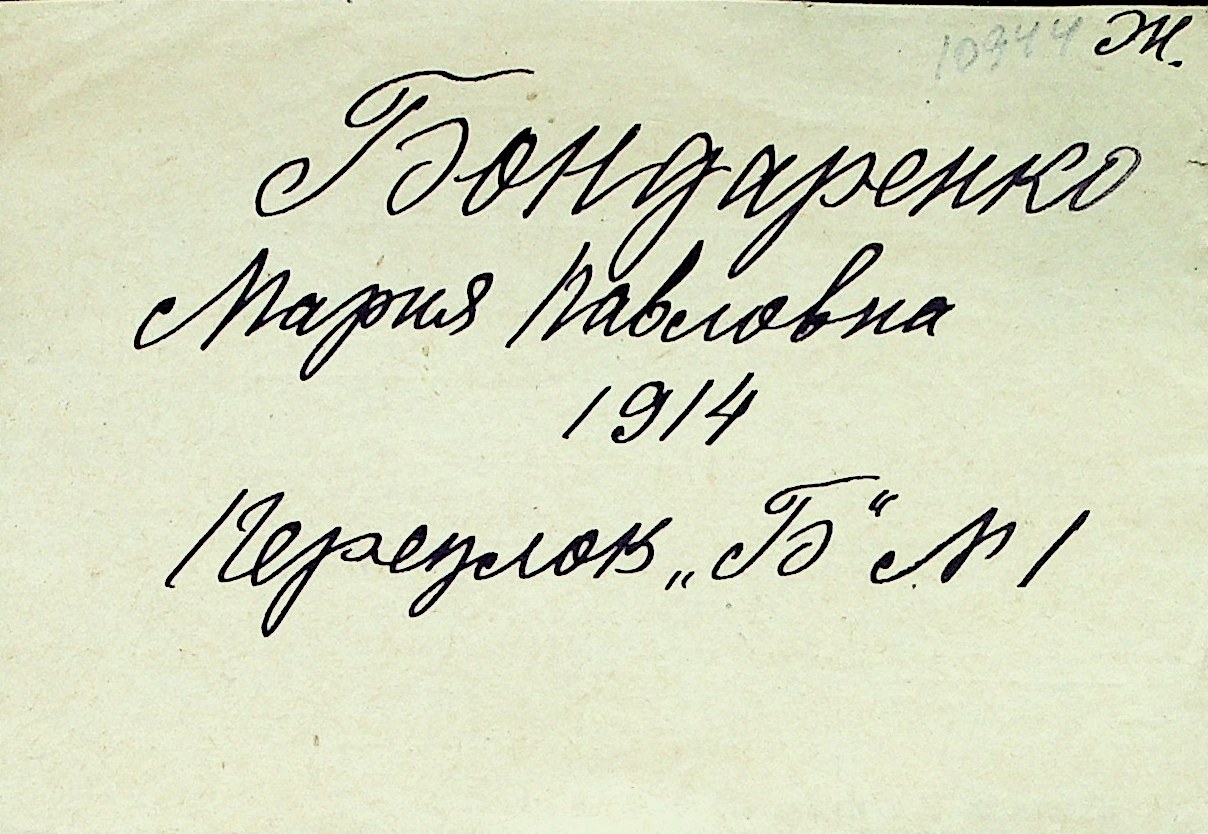 10944 Ж.
Бондаренко
Мария Павловна
1914
Переулок „Б“ № 1